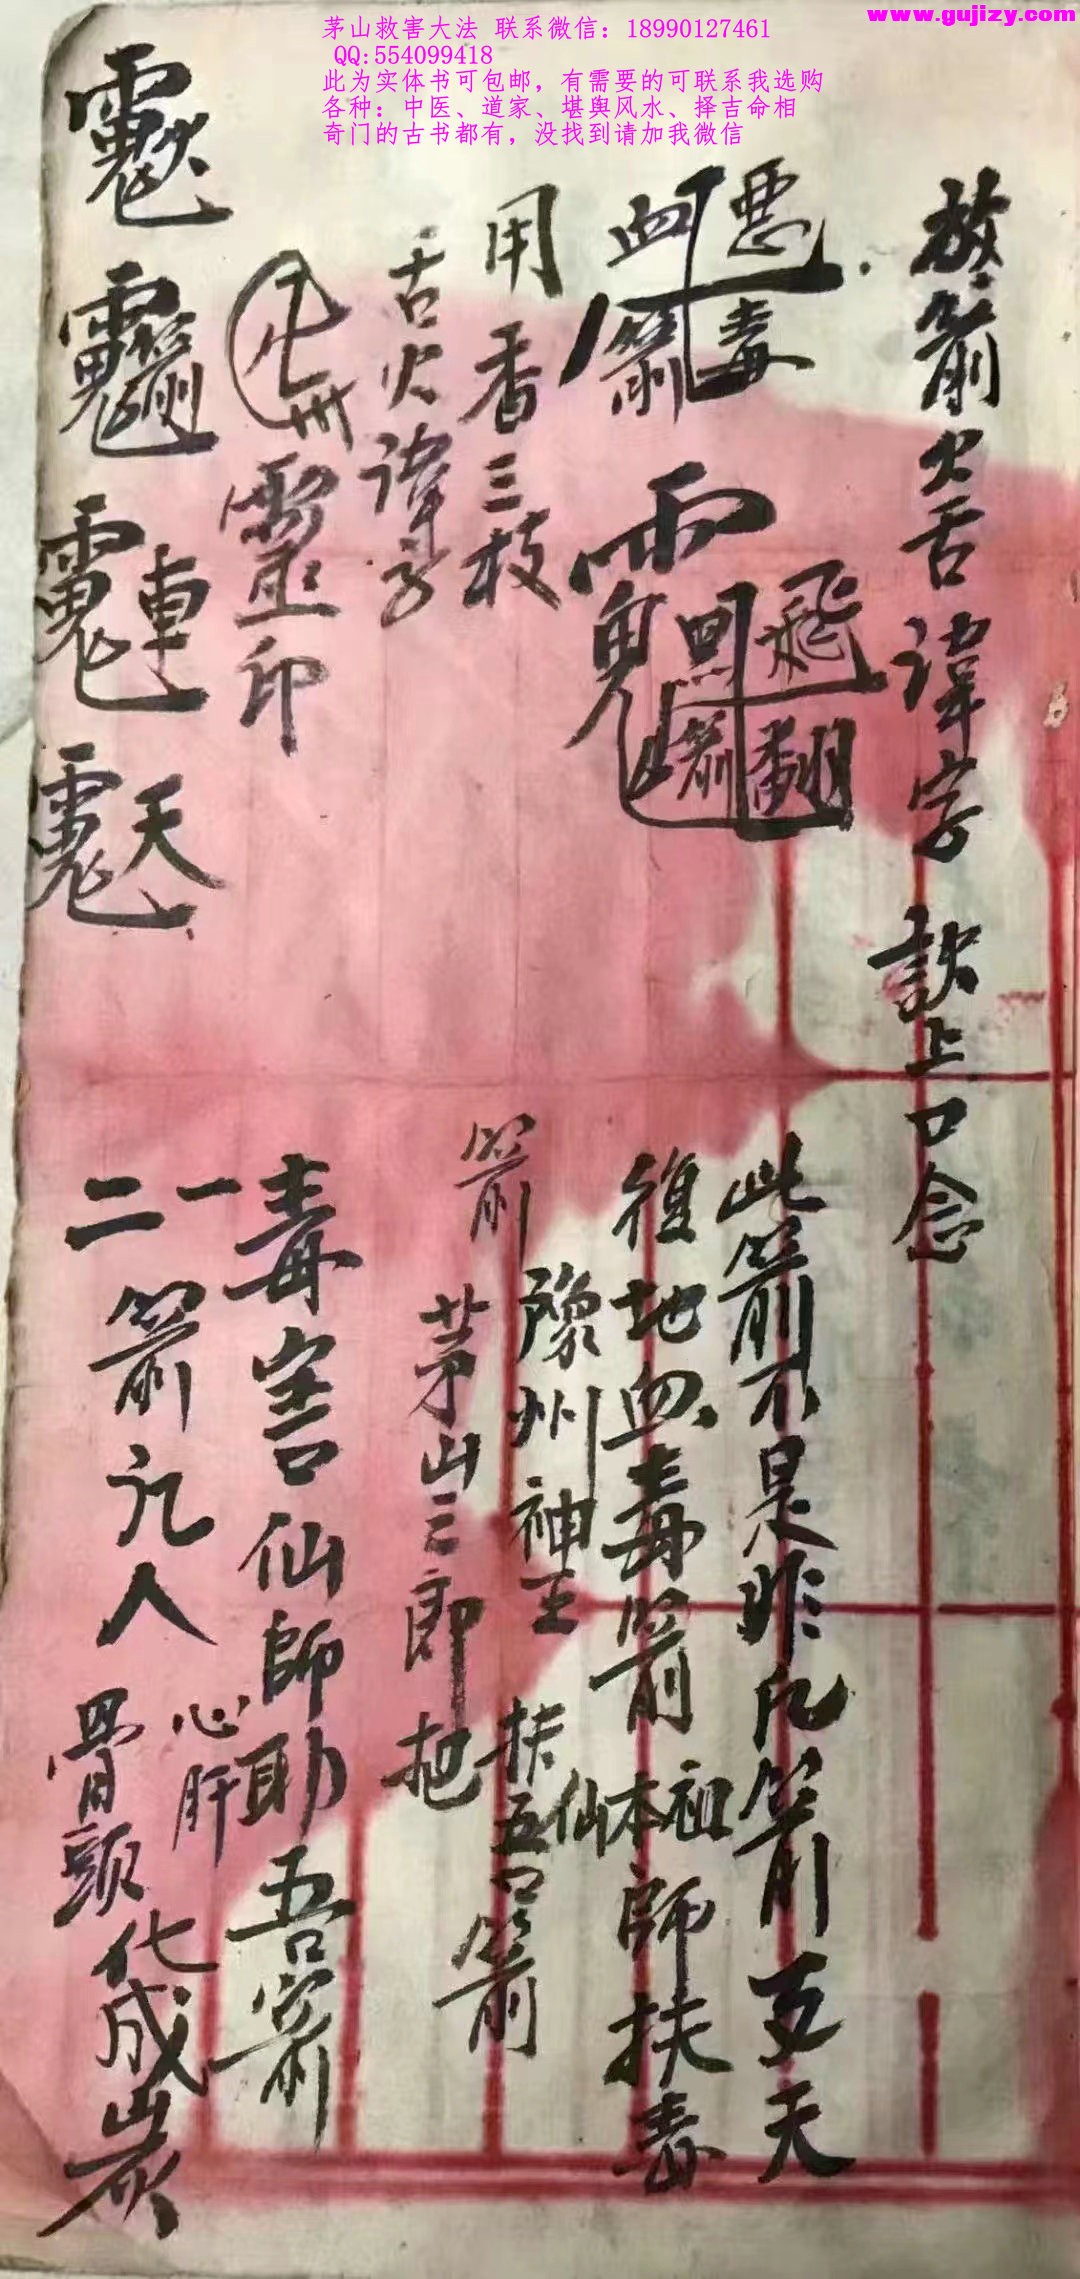 www.gujizy.com
茅山救害大法 联系微信：18990127461
QQ:554099418
此为实体书可包邮，有需要的可联系我选购
各种：中医、道家、堪舆风水、择吉命相
奇门的古书都有，没找到请加我微信
放箭火舌諱字 訣上口念
惡毒
血箭
飛翻
用香三枝
舌火諱字
靈印
此箭不是非凡箭 天
復地血毒箭 祖本仙師扶毒
箭 豫州神王 扶吾箭
茅山三郎把
毒害仙師助吾箭
一二箭 人 心肝骨頭化成炭